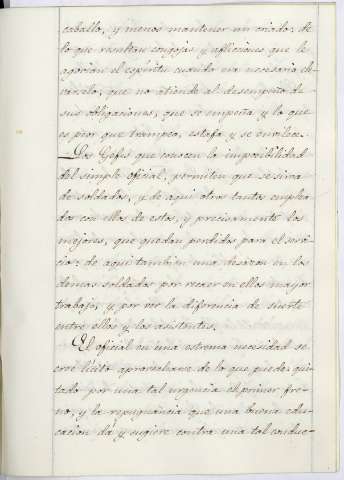 caballo, y menos mantener un criado; de
lo que resultan congojas y aflicciones que le
agovian el espíritu cuando era necesario ele-
varselo; que no atiende al desempeño de
sus obligaciones; que se empeña y lo que
es peor que trampea, estafa y se envilece.
Los Gefes que conocen la imposibilidad
del simple oficial, permiten que se sirva
de soldados, y de aqui otros tantos emplea-
dos con ellos de estos, y precisamente los
mejores, que quedan perdidos para el servi-
cio: de aqui tambien una desazon en los
demas soldados por recaer en ellos mayor
trabajo, y por ver la diferencia de suerte
entre ellos y los asistentes.
El oficial en una estrema necesidad se
cree licito aprovecharse de lo que puede, qui-
tado por una tal urgencia el primer fre-
no, y la repugnancia que una buena edu-
cacion dá y sugiere contra una tal conduc-